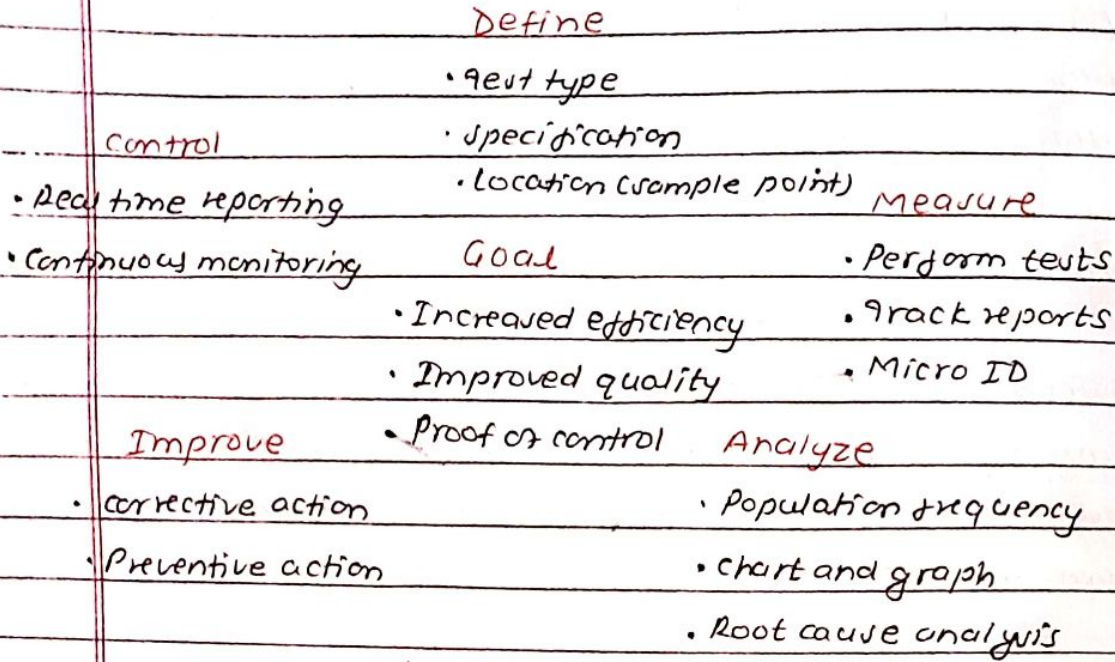 Define
• Test type
• specification
• Location (sample point)
Control
• Real time reporting
• Continuous monitoring
Measure
• Perform tests
• Track reports
• Micro ID
Goal
• Increased efficiency
• Improved quality
• Proof of control
Improve
• corrective action
• Preventive action
Analyze
• Population frequency
• chart and graph
• Root cause analysis